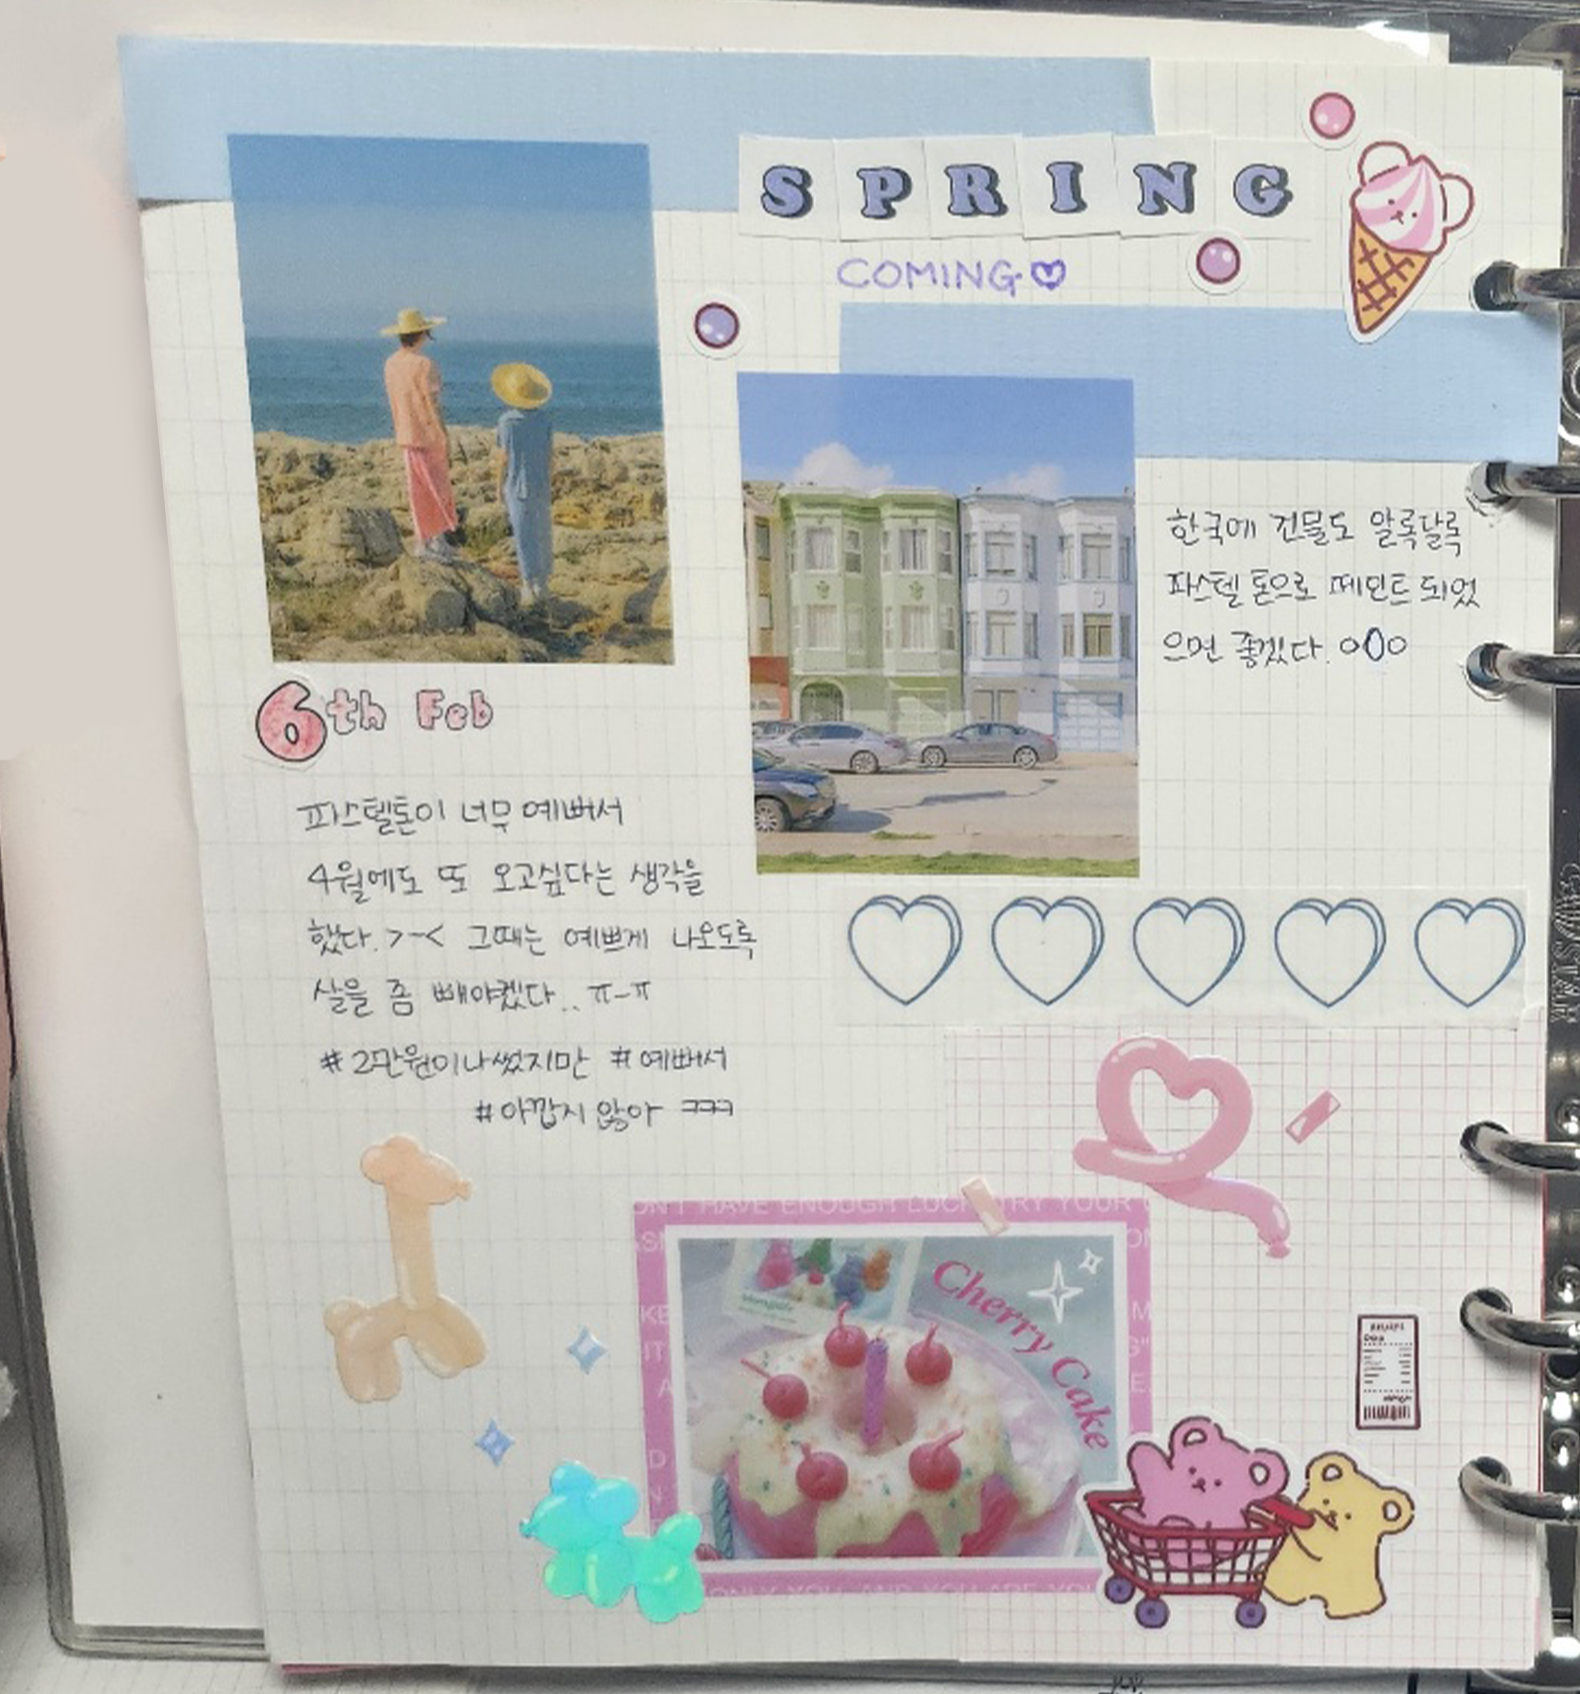 SPRING
COMING♡
한국에 건물도 알록달록
파스텔 톤으로 페인트 되었
으면 좋겠다. o0o
6th Feb
파스텔톤이 너무 예뻐서
4월에도 또 오고싶다는 생각을
했다. >-< 그때는 예쁘게 나오도록
살을 좀 빼야겠다.. ㅠ-ㅠ
#2만원이나썼지만 #예뻐서
#아깝지 않아 ㅋㅋㅋ
HAVE ENOUGH LUCK TRY YOUR
Cherry Cake
ONLY YOU AND YOU ARE